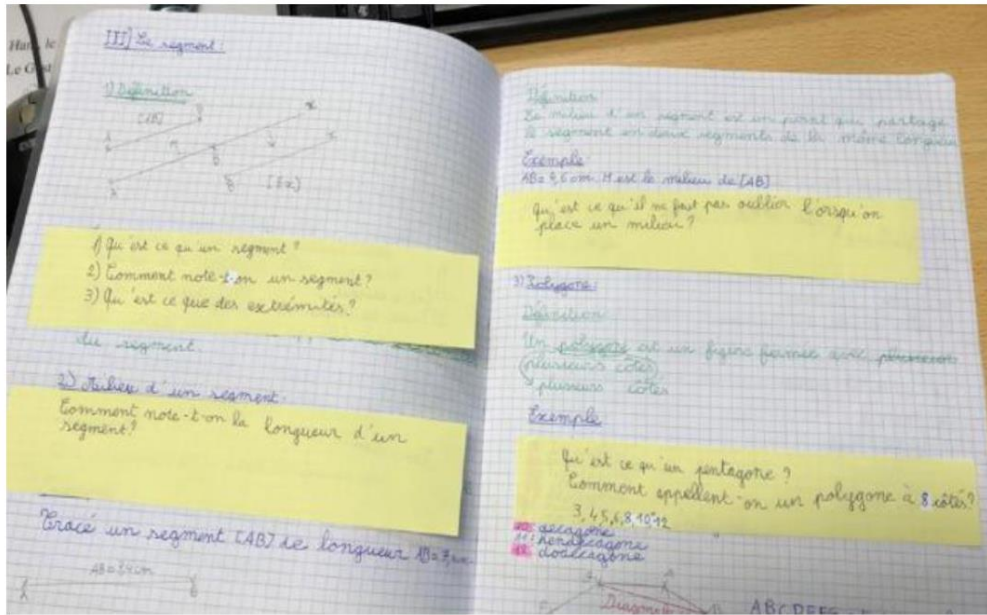 III] Le segment :
1) Définition
[AB]
A
B
x
A
B
x
B
[Bx)
1) Qu'est ce qu'un segment ?
2) Comment note-t-on un segment ?
3) Qu'est ce que des extrémités ?
du segment.
2) Milieu d'un segment.
Comment note-t-on la longueur d'un
segment ?
Tracé un segment [AB] de longueur AB = 3,
Définition
Le milieu d'un segment est un point qui partage
le segment en deux segments de la même longueur
Exemple
AB = 9,6 cm M est le milieu de [AB]
Qu'est ce qu'il ne faut pas oublier l'orsqu'on
place un milieu ?
3) Polygone :
Définition
Un polygone est un figure fermée avec
plusieurs côtés
Exemple
Qu'est ce qu'un pentagone ?
Comment appellent-on un polygone à 8 côtés ?
3, 4, 5, 6, 8, 10, 12
10: décagone
11: hendécagone
12: dodécagone